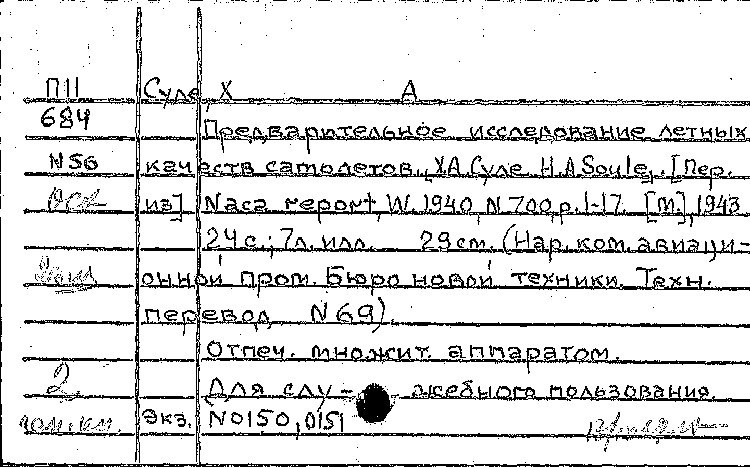 П11 Суле, Х А
684 Предварительное исследование летных
N56 качеств самолетов. ХА Суле H.A Soule, [Пер.
из] Naca report, W. 1940, N 700, p. 1-17. [М.], 1943.
24 с.; 7 л. илл. 29 см. (Нар. ком. авиаци-
онной пром. Бюро новой техники. Техн.
перевод N 69).
Отпеч. множит. аппаратом.
2 Для слу- жебного пользования.
Экз. N0150, 0151